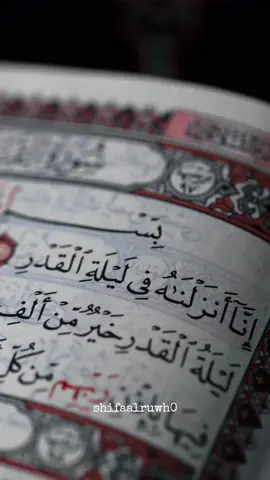 سُورَةُ
بِسْـ
إِنَّآ أَنزَلْنَـٰهُ فِى لَيْلَةِ ٱلْقَدْرِ
لَيْلَةُ ٱلْقَدْرِ خَيْرٌ مِّنْ أَلْفِ
فِيهَا مِّن كُلِّ
shifaalruwh0